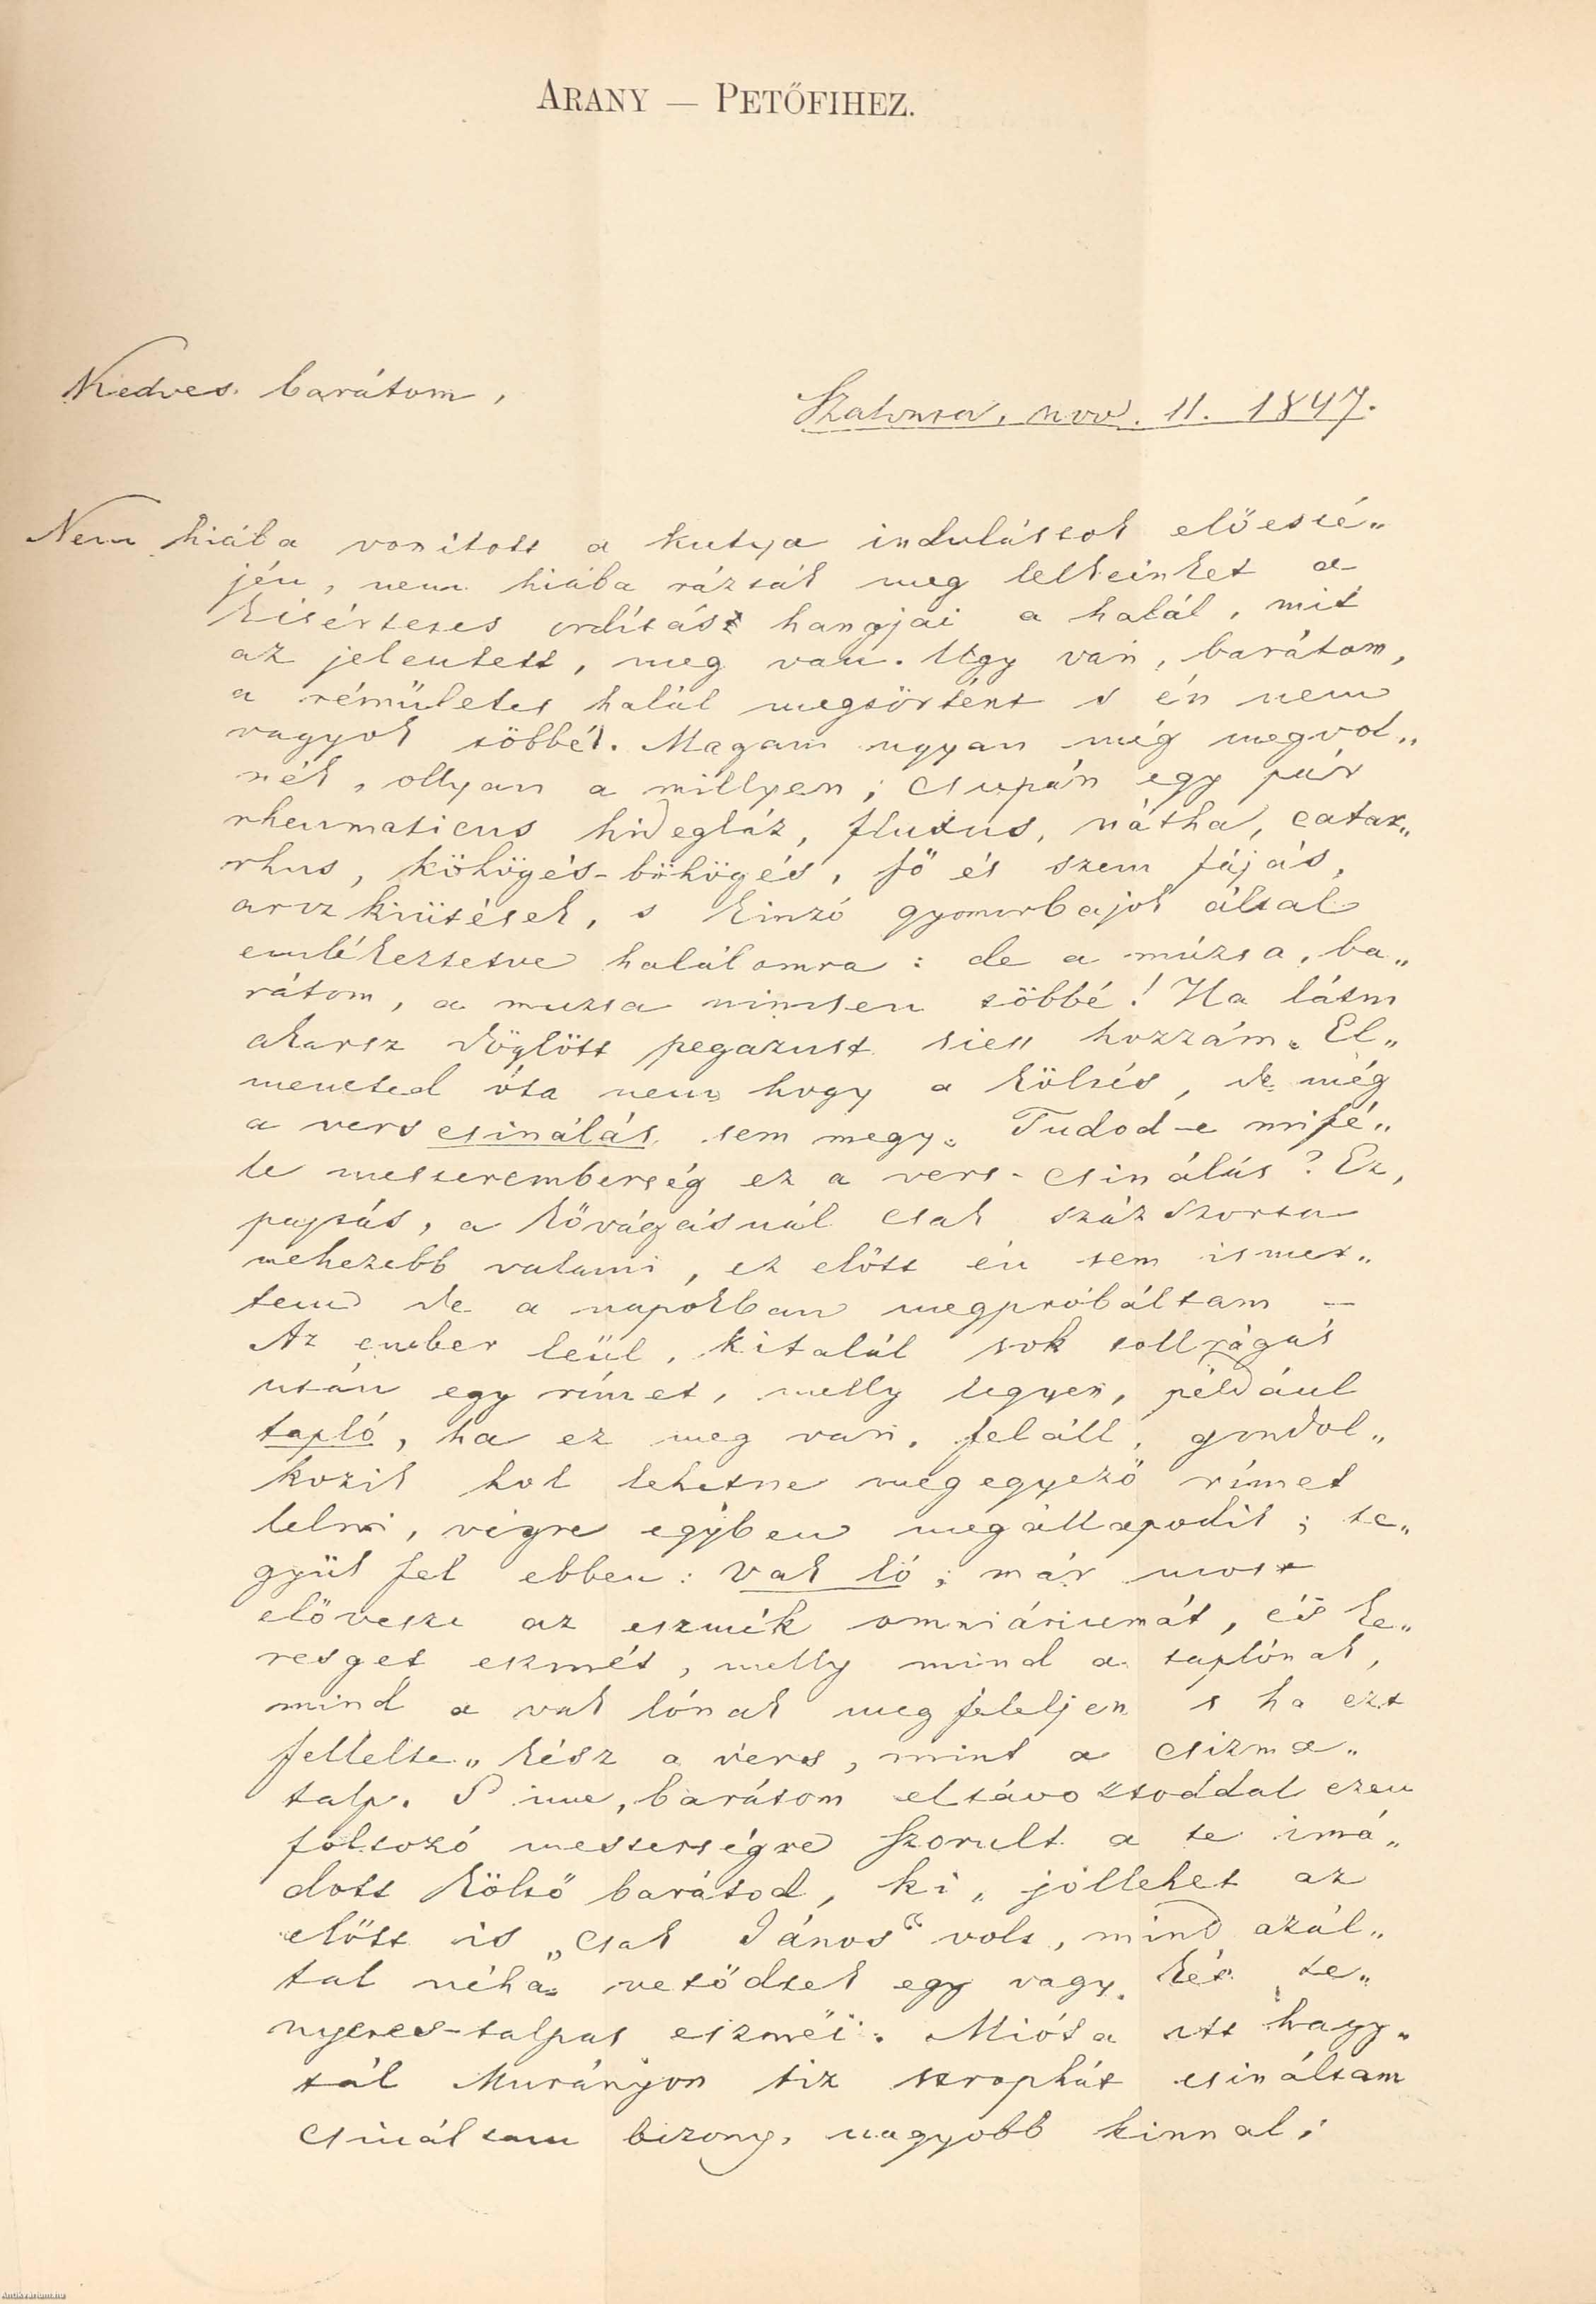 ARANY — PETŐFIHEZ.
Kedves barátom,
Szalonta, nov. 11. 1847.
Nem hiába vonitott a kutya indulástok előesté„
jén, nem hiába rázták meg lelkeinket a
kisérteties orditás hangjai a halál, mit
az jelentett, meg van. Ugy van, barátom,
a rémületes halál megtörtént s én nem
vagyok többé. Magam ugyan még megvol„
nék, ollyan a millyen; csupán egy pár
rheumaticus hidegláz, fluxus, nátha, catar„
rhus, köhögés-böhögés, fő és szem fájás,
arcz kiütések, s kinzó gyomorbajok által
emlékeztetve halálomra: de a múzsa, ba„
rátom, a muzsa nincsen többé! Ha látni
akarsz döglött pegazust siess hozzám. El„
meneted óta nem hogy a költés, de még
a vers csinálás sem megy. Tudod-e mifé„
le mesteremberség ez a vers-csinálás? Ez,
pajtás, a kővágásnál csak száz szorta
nehezebb valami, ez előtt én sem ismer„
tem de a napokban megpróbáltam —
Az ember leül, kitalál sok tollrágás
után egy rímet, melly legyen, például
tapló, ha ez meg van, feláll, gondol„
kozik hol lehetne megegyező rímet
lelni, végre egyben megállapodik; te„
gyük fel ebben: vak ló; már most
elővesze az eszmék omniáriumát, és ke„
resget eszmét, melly mind a taplónak,
mind a vak lónak megfeleljen s ha ezt
fellelte„ kész a vers, mint a csizma„
talp. S ime, barátom eltávoztoddal ezen
foltozó mesterségre szorult a te imá„
dott költő barátod, ki, jóllehet az
előtt is „csak János“ volt, mind azál„
tal néha vetődtek egy vagy két te„
nyeres-talpas eszméi. Mióta itt hagy„
tál Murányon tiz strophát csináltam
csináltam bizony, nagyobb kinnal,
Antikvarium.hu